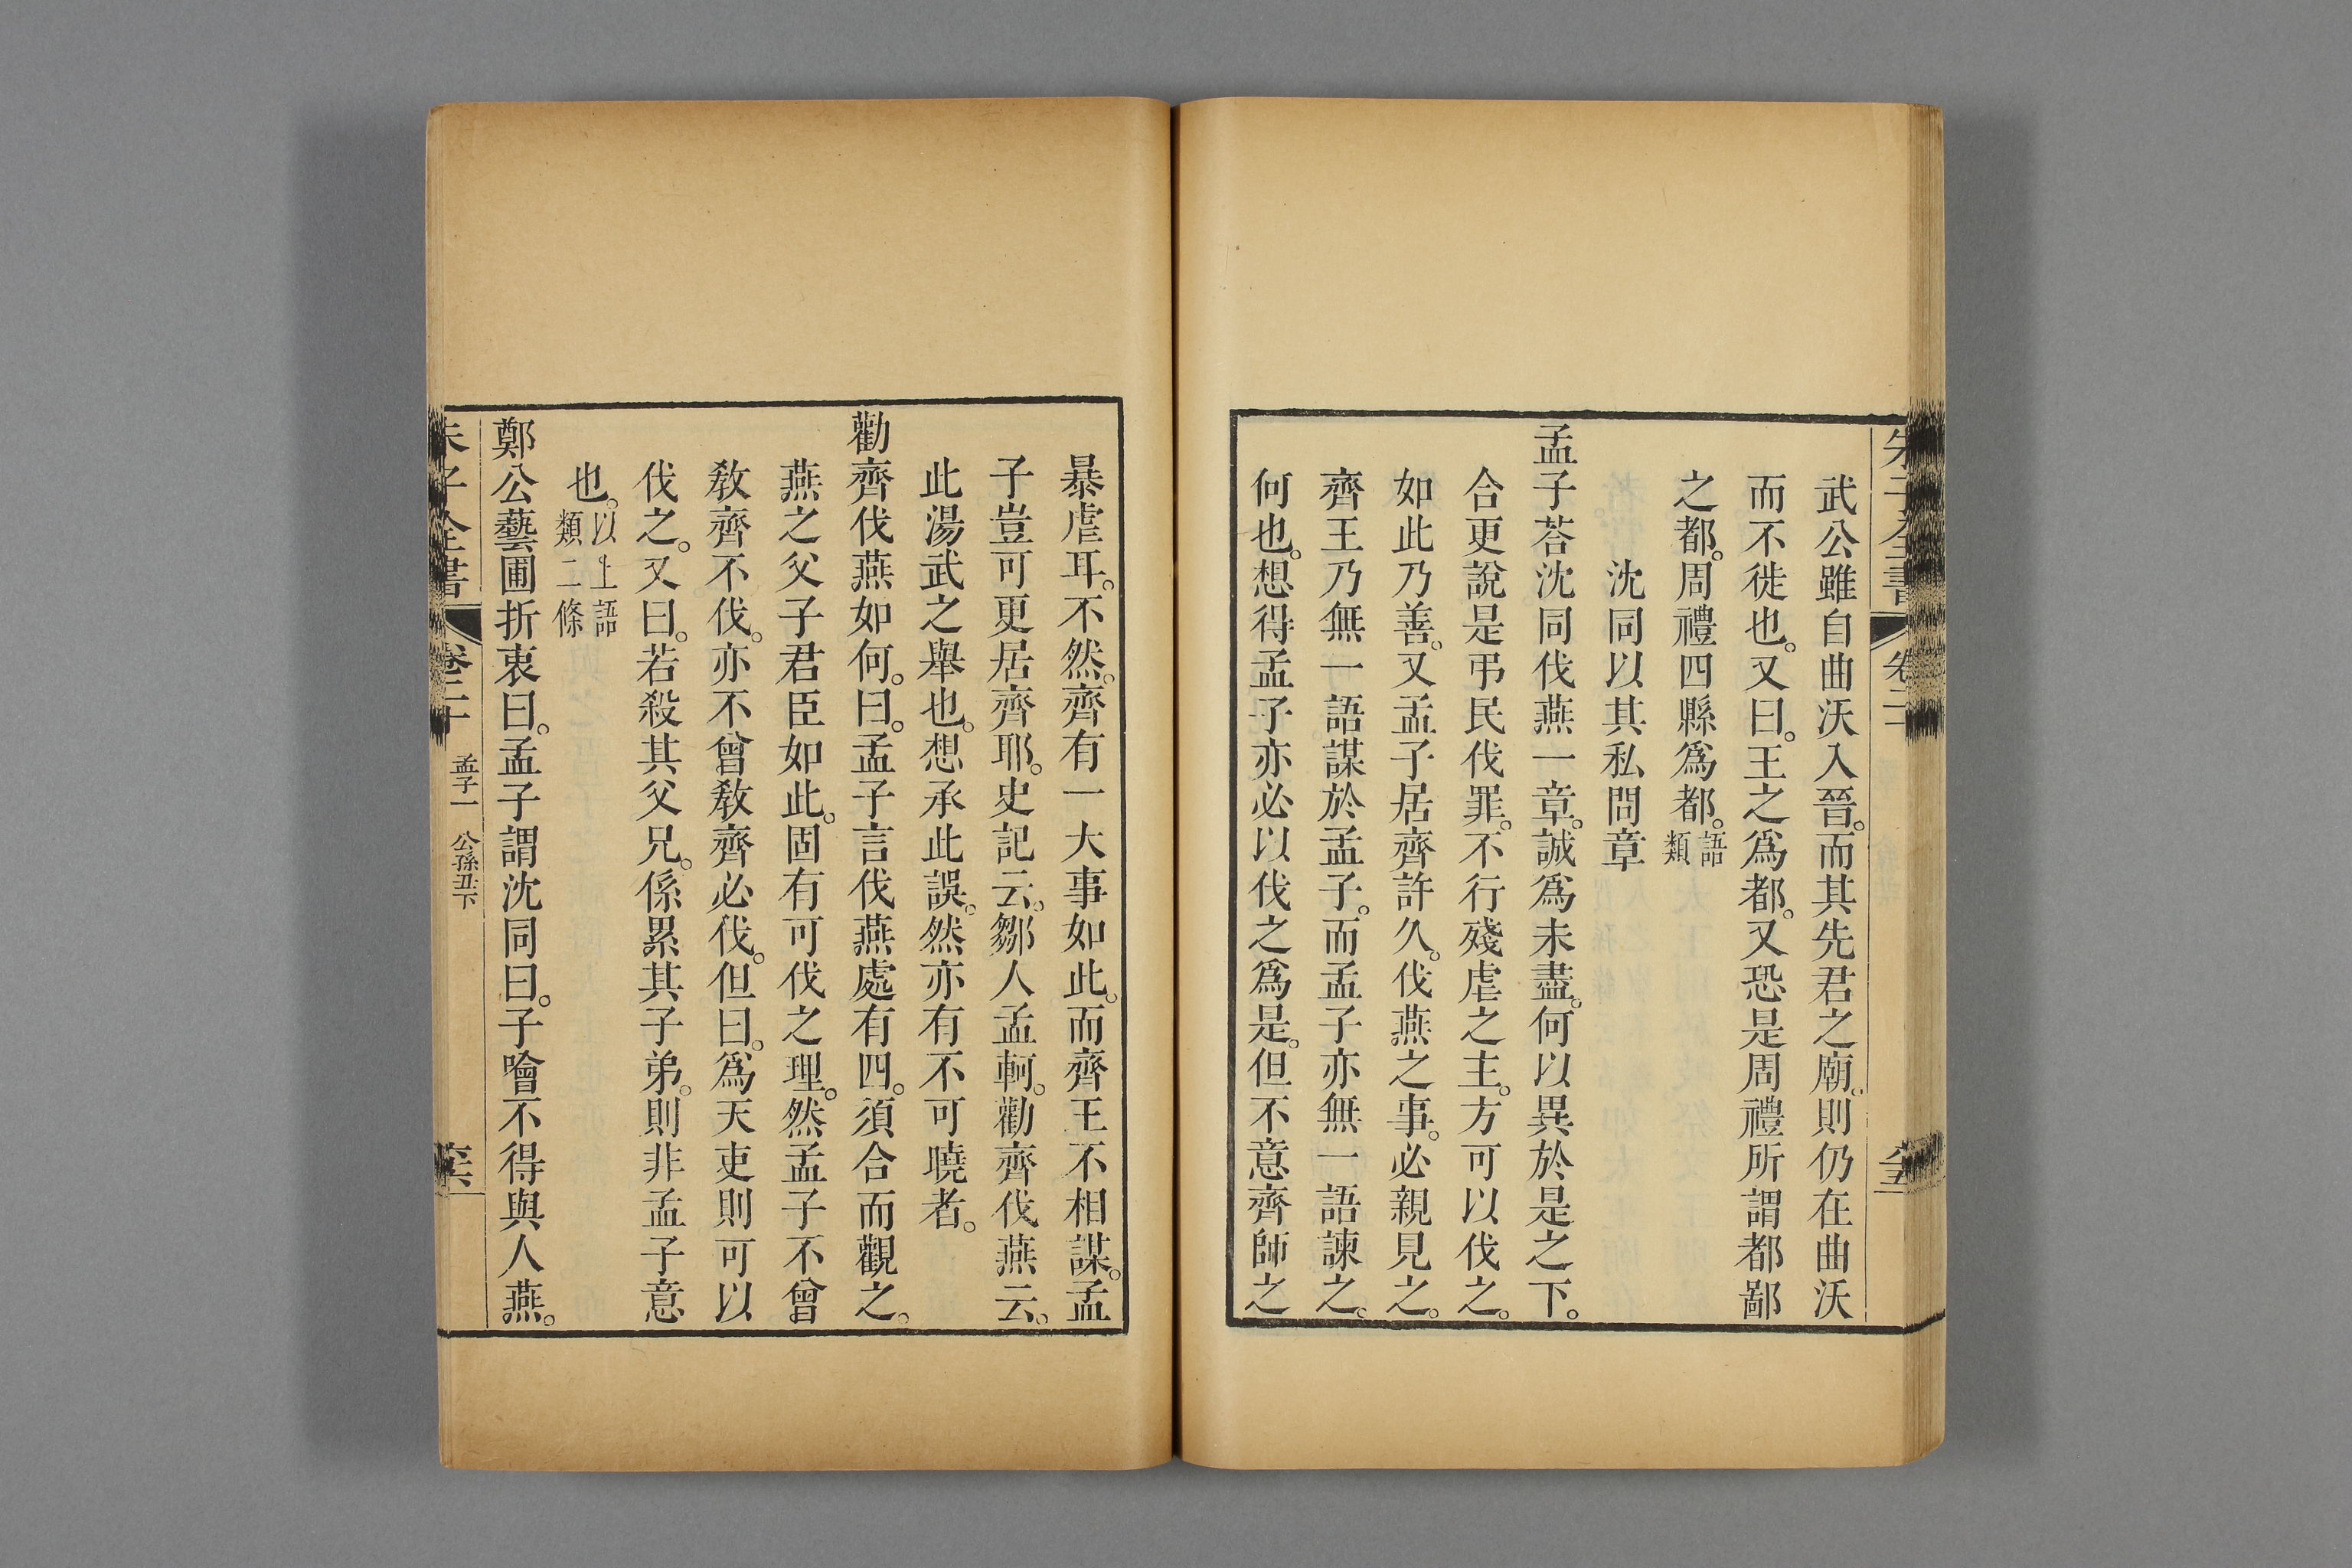 武公雖自曲沃入晉。而其先君之廟。則仍在曲沃
而不徙也。又曰。王之爲都。又恐是周禮所謂都鄙
之都。周禮四縣爲都。語類
沈同以其私問章
孟子荅沈同伐燕一章。誠爲未盡。何以異於是之下。
合更說是弔民伐罪。不行殘虐之主。方可以伐之。
如此乃善。又孟子居齊許久。伐燕之事。必親見之。
齊王乃無一語謀於孟子。而孟子亦無一語諫之。
何也。想得孟子亦必以伐之爲是。但不意齊師之
暴虐耳。不然。齊有一大事如此。而齊王不相謀。孟
子豈可更居齊耶。史記云。鄒人孟軻。勸齊伐燕云。
此湯武之舉也。想承此誤。然亦有不可曉者。
勸齊伐燕如何。曰。孟子言伐燕處有四。須合而觀之。
燕之父子君臣如此。固有可伐之理。然孟子不曾
敎齊不伐。亦不曾敎齊必伐。但曰。爲天吏則可以
伐之。又曰。若殺其父兄。係累其子弟。則非孟子意
也。以上語類二條
鄭公藝圃折衷曰。孟子謂沈同曰。子噲不得與人燕。
朱子全書
卷二十
孟子一 公孫丑下